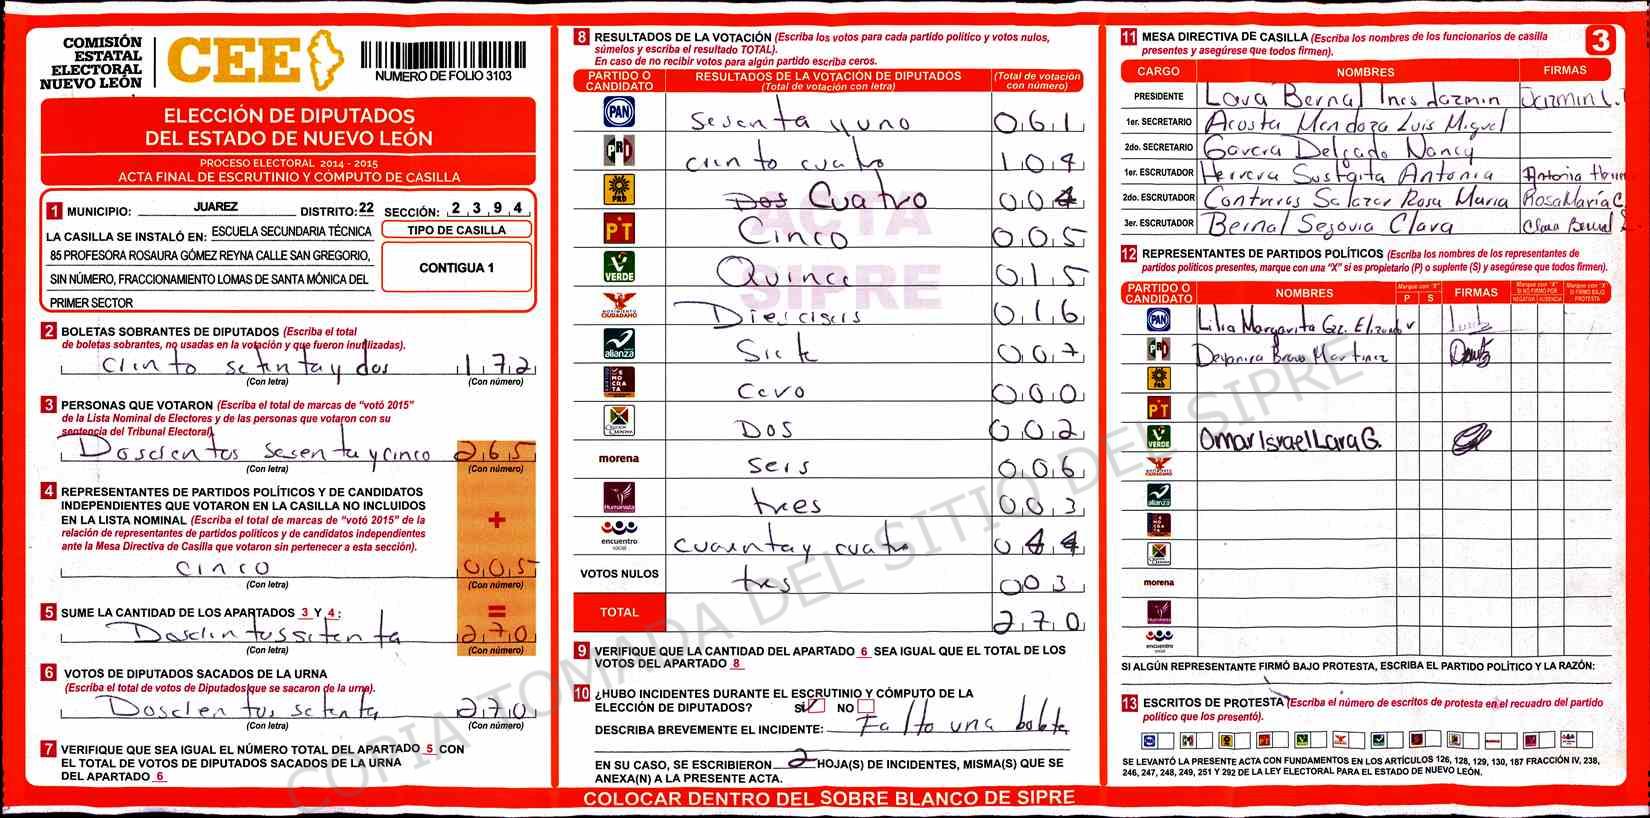 COMISIÓN
ESTATAL
ELECTORAL
NUEVO LEÓN
CEE
NUMERO DE FOLIO 3103
ELECCIÓN DE DIPUTADOS
DEL ESTADO DE NUEVO LEÓN
PROCESO ELECTORAL 2014 - 2015
ACTA FINAL DE ESCRUTINIO Y CÓMPUTO DE CASILLA
1 MUNICIPIO: JUAREZ DISTRITO: 22 SECCIÓN: 2 3 9 4
LA CASILLA SE INSTALÓ EN: ESCUELA SECUNDARIA TÉCNICA
85 PROFESORA ROSAURA GÓMEZ REYNA CALLE SAN GREGORIO,
SIN NÚMERO, FRACCIONAMIENTO LOMAS DE SANTA MÓNICA DEL
PRIMER SECTOR
TIPO DE CASILLA
CONTIGUA 1
2 BOLETAS SOBRANTES DE DIPUTADOS (Escriba el total
de boletas sobrantes, no usadas en la votación y que fueron inutilizadas).
Ciento setenta y dos 1 7 2
(Con letra) (Con número)
3 PERSONAS QUE VOTARON (Escriba el total de marcas de "votó 2015"
de la Lista Nominal de Electores y de las personas que votaron con su
sentencia del Tribunal Electoral).
Doscientos sesenta y cinco 2 6 5
(Con letra) (Con número)
4 REPRESENTANTES DE PARTIDOS POLÍTICOS Y DE CANDIDATOS
INDEPENDIENTES QUE VOTARON EN LA CASILLA NO INCLUIDOS
EN LA LISTA NOMINAL (Escriba el total de marcas de "votó 2015" de la
relación de representantes de partidos políticos y de candidatos independientes
ante la Mesa Directiva de Casilla que votaron sin pertenecer a esta sección).
+
cinco 0 0 5
(Con letra) (Con número)
5 SUME LA CANTIDAD DE LOS APARTADOS 3 Y 4: =
Doscientos setenta 2 7 0
(Con letra) (Con número)
6 VOTOS DE DIPUTADOS SACADOS DE LA URNA
(Escriba el total de votos de Diputados que se sacaron de la urna).
Doscientos setenta 2 7 0
(Con letra) (Con número)
7 VERIFIQUE QUE SEA IGUAL EL NÚMERO TOTAL DEL APARTADO 5 CON
EL TOTAL DE VOTOS DE DIPUTADOS SACADOS DE LA URNA
DEL APARTADO 6
8 RESULTADOS DE LA VOTACIÓN (Escriba los votos para cada partido político y votos nulos,
súmelos y escriba el resultado TOTAL).
En caso de no recibir votos para algún partido escriba ceros.
PARTIDO O CANDIDATO RESULTADOS DE LA VOTACIÓN DE DIPUTADOS (Total de votación con letra) (Total de votación con número)
PAN sesenta y uno 0 6 1
PRI ciento cuatro 1 0 4
PRD Dos Cuatro 0 0 4
PT Cinco 0 0 5
VERDE Quince 0 1 5
MOVIMIENTO CIUDADANO Diesciseis 0 1 6
alianza Siete 0 0 7
DEMOCRATA Cero 0 0 0
CRUZADA CIUDADANA DOS 0 0 2
morena seis 0 0 6
Humanista tres 0 0 3
encuentro social cuarenta y cuatro 0 4 4
VOTOS NULOS tres 0 0 3
TOTAL 2 7 0
ACTA
SIPRE
9 VERIFIQUE QUE LA CANTIDAD DEL APARTADO 6 SEA IGUAL QUE EL TOTAL DE LOS
VOTOS DEL APARTADO 8
10 ¿HUBO INCIDENTES DURANTE EL ESCRUTINIO Y CÓMPUTO DE LA
ELECCIÓN DE DIPUTADOS? SÍ NO
DESCRIBA BREVEMENTE EL INCIDENTE: Falto una boleta
EN SU CASO, SE ESCRIBIERON 2 HOJA(S) DE INCIDENTES, MISMA(S) QUE SE
ANEXA(N) A LA PRESENTE ACTA.
11 MESA DIRECTIVA DE CASILLA (Escriba los nombres de los funcionarios de casilla
presentes y asegúrese que todos firmen).
3
CARGO NOMBRES FIRMAS
PRESIDENTE Lara Bernal Ines Jazmin Jazmin L.
1er. SECRETARIO Acosta Mendoza Luis Miguel
2do. SECRETARIO Garcia Delgado Nancy
1er. ESCRUTADOR Herrera Sustaita Antonia Antonia
2do. ESCRUTADOR Contreras Salazar Rosa Maria Rosa María C
3er. ESCRUTADOR Bernal Segovia Clara Clara Bernal
12 REPRESENTANTES DE PARTIDOS POLÍTICOS (Escriba los nombres de los representantes de
partidos políticos presentes, marque con una "X" si es propietario (P) o suplente (S) y asegúrese que todos firmen).
PARTIDO O CANDIDATO NOMBRES Marque con "X" P S FIRMAS Marque con "X" SI NO FIRMÓ POR NEGATIVA AUSENCIA Marque con "X" SI FIRMÓ BAJO PROTESTA
PAN Lilia Margarita Gzz. Elizondo
PRI Deyanira Bravo Martinez
PRD
PT
VERDE Omar Israel Lara G.
MOVIMIENTO CIUDADANO
alianza
morena
Humanista
encuentro social
SI ALGÚN REPRESENTANTE FIRMÓ BAJO PROTESTA, ESCRIBA EL PARTIDO POLÍTICO Y LA RAZÓN:
13 ESCRITOS DE PROTESTA (Escriba el número de escritos de protesta en el recuadro del partido
político que los presentó).
SE LEVANTÓ LA PRESENTE ACTA CON FUNDAMENTOS EN LOS ARTÍCULOS 126, 128, 129, 130, 187 FRACCIÓN IV, 238,
246, 247, 248, 249, 251 Y 292 DE LA LEY ELECTORAL PARA EL ESTADO DE NUEVO LEÓN.
COLOCAR DENTRO DEL SOBRE BLANCO DE SIPRE
COPIA TOMADA DEL SITIO DEL SIPRE